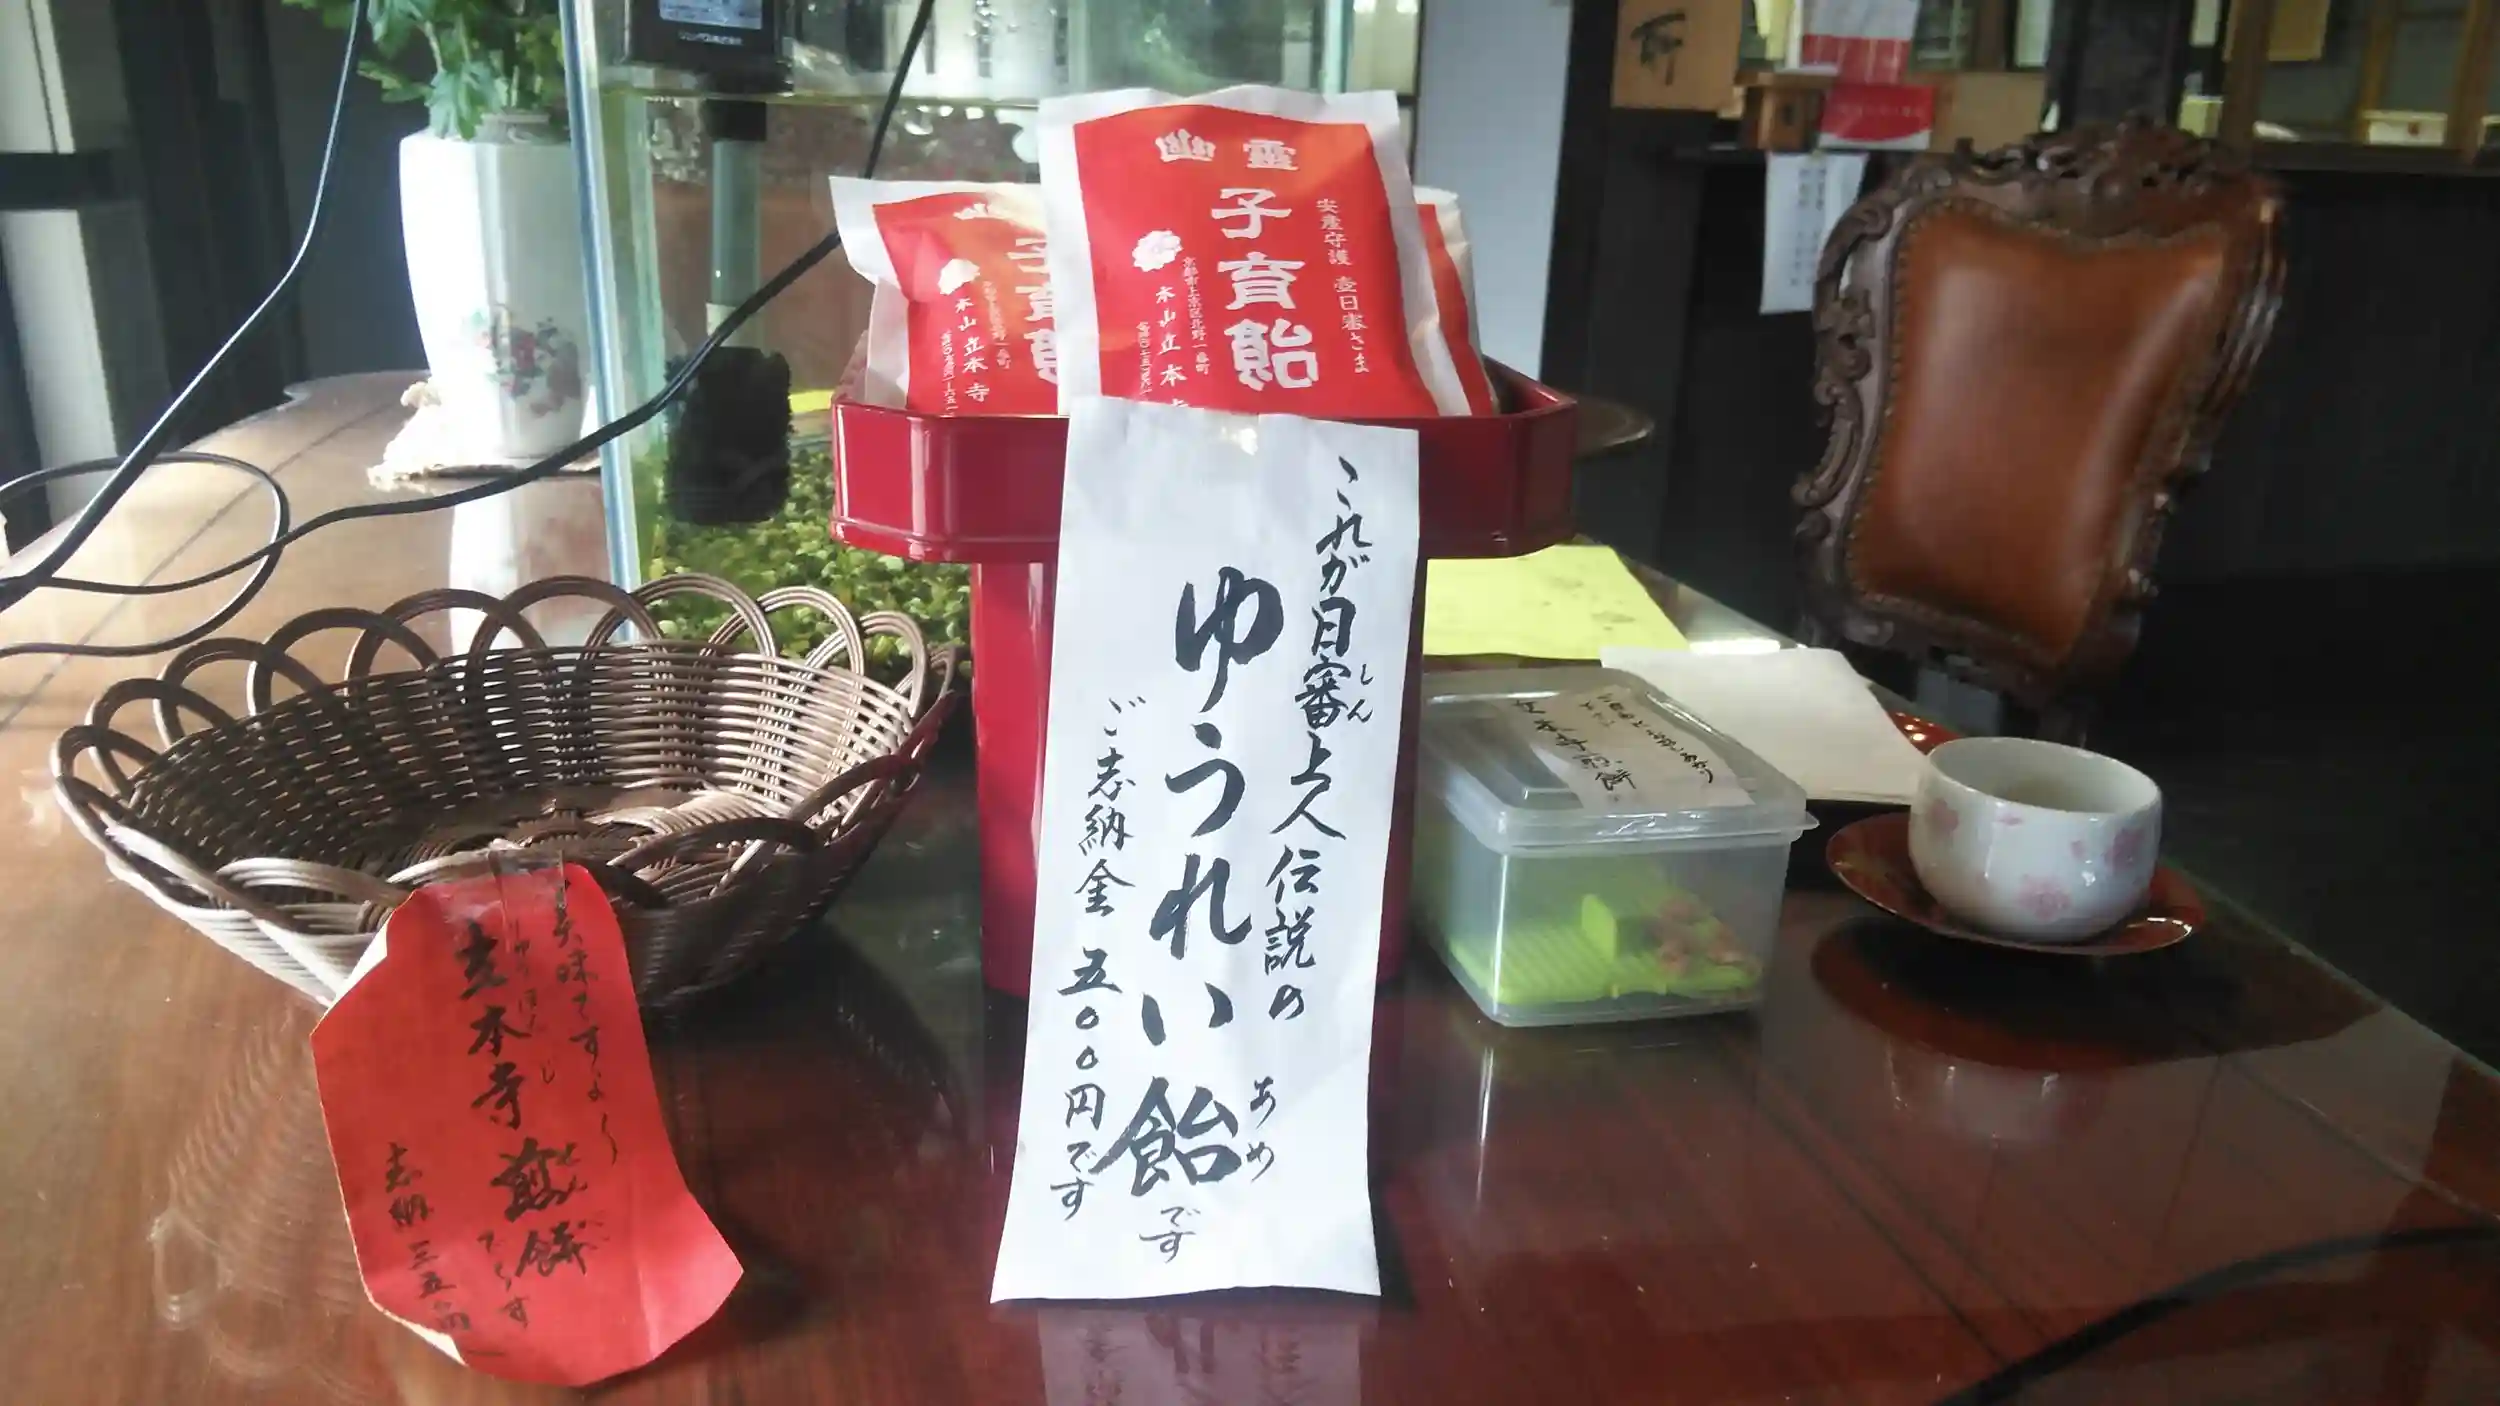 幽霊
子育飴
安産守護 壹日審さま
京都市上京区北野一番町
本山立本寺
これが日審上人伝説の
しん
ゆうれい飴です
あめ
ご志納金 五〇〇円です
美味ですよ〜
立本寺煎餅
りゅうほんじ
せんべい
で〜す
志納 三五〇円